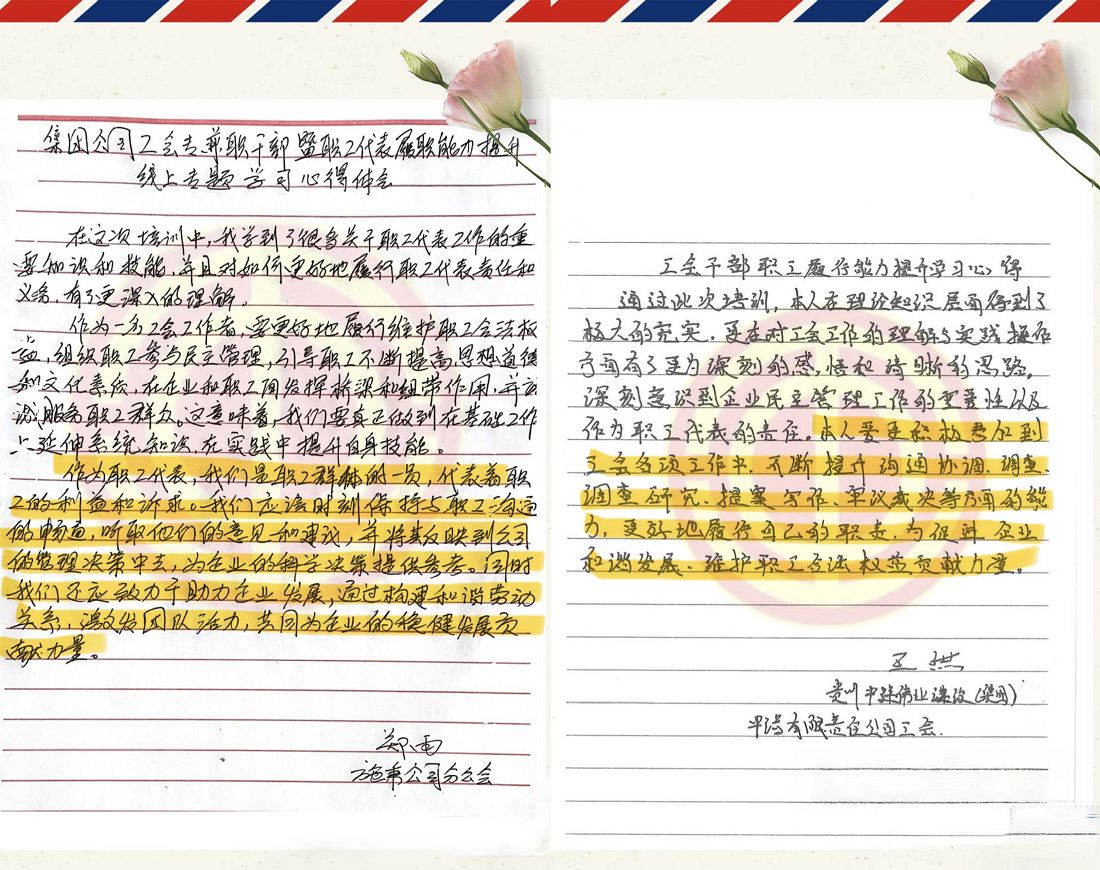 集团公司工会专兼职干部暨职工代表履职能力提升
线上专题学习心得体会
在这次培训中，我学到了很多关于职工代表工作的重
要知识和技能，并且对如何更好地履行职工代表责任和
义务，有了更深入的理解。
作为一名工会工作者，要更好地履行维护职工合法权
益，组织职工参与民主管理，引导职工不断提高思想道德
和文化素质，在企业和职工间发挥桥梁和纽带作用，并
服务职工群众。这意味着，我们要真正做到在基础工作
上延伸系统知识，在实践中提升自身技能。
作为职工代表，我们是职工群体的一员，代表着职
工的利益和诉求。我们应该时刻保持与职工沟通
的畅通，听取他们的意见和建议，并将其反映到公司
的管理决策中去，为企业的科学决策提供参考。同时
我们还应致力于助力企业发展，通过构建和谐劳动
关系，激发团队活力，共同为企业的稳健发展贡
献力量。
郑雨
施秉公司分工会
工会干部职工履行能力提升学习心得
通过此次培训，本人在理论知识层面得到了
极大的充实，更在对工会工作的理解与实践操作
方面有了更为深刻的感悟和清晰的思路。
深刻意识到企业民主管理工作的重要性以及
作为职工代表的责任。本人要更积极参加到
工会各项工作中，不断提升沟通协调、调查、
调查研究、提案写作、审议裁决等方面的能
力，更好地履行自己的职责，为促进企业
和谐发展、维护职工合法权益贡献力量。
王洪
贵州中黔伟业建设(集团)
平塘有限责任公司工会.